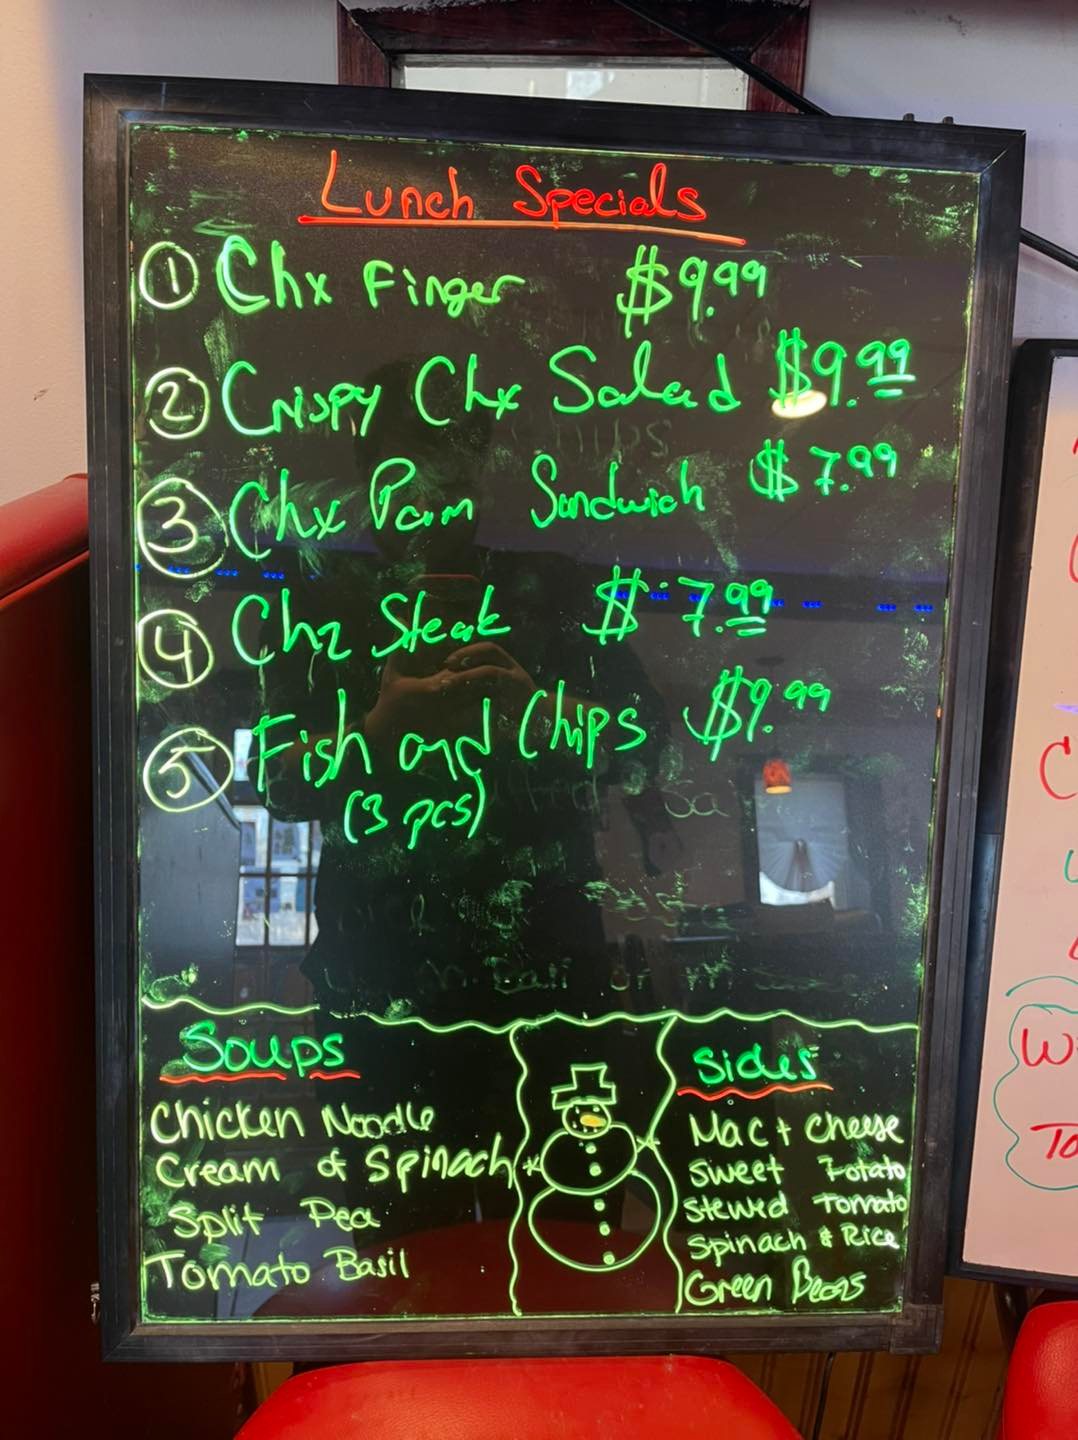 Lunch Specials
1 Chx Finger $9.99
2 Crispy Chx Salad $9.99
3 Chx Parm Sandwich $7.99
4 Chz Steak $7.99
5 Fish and Chips $9.99
(3 pcs)
Soups
Chicken Noodle
Cream of Spinach
Split Pea
Tomato Basil
Sides
Mac + Cheese
Sweet Potato
Stewed Tomato
Spinach & Rice
Green Beans
W
To